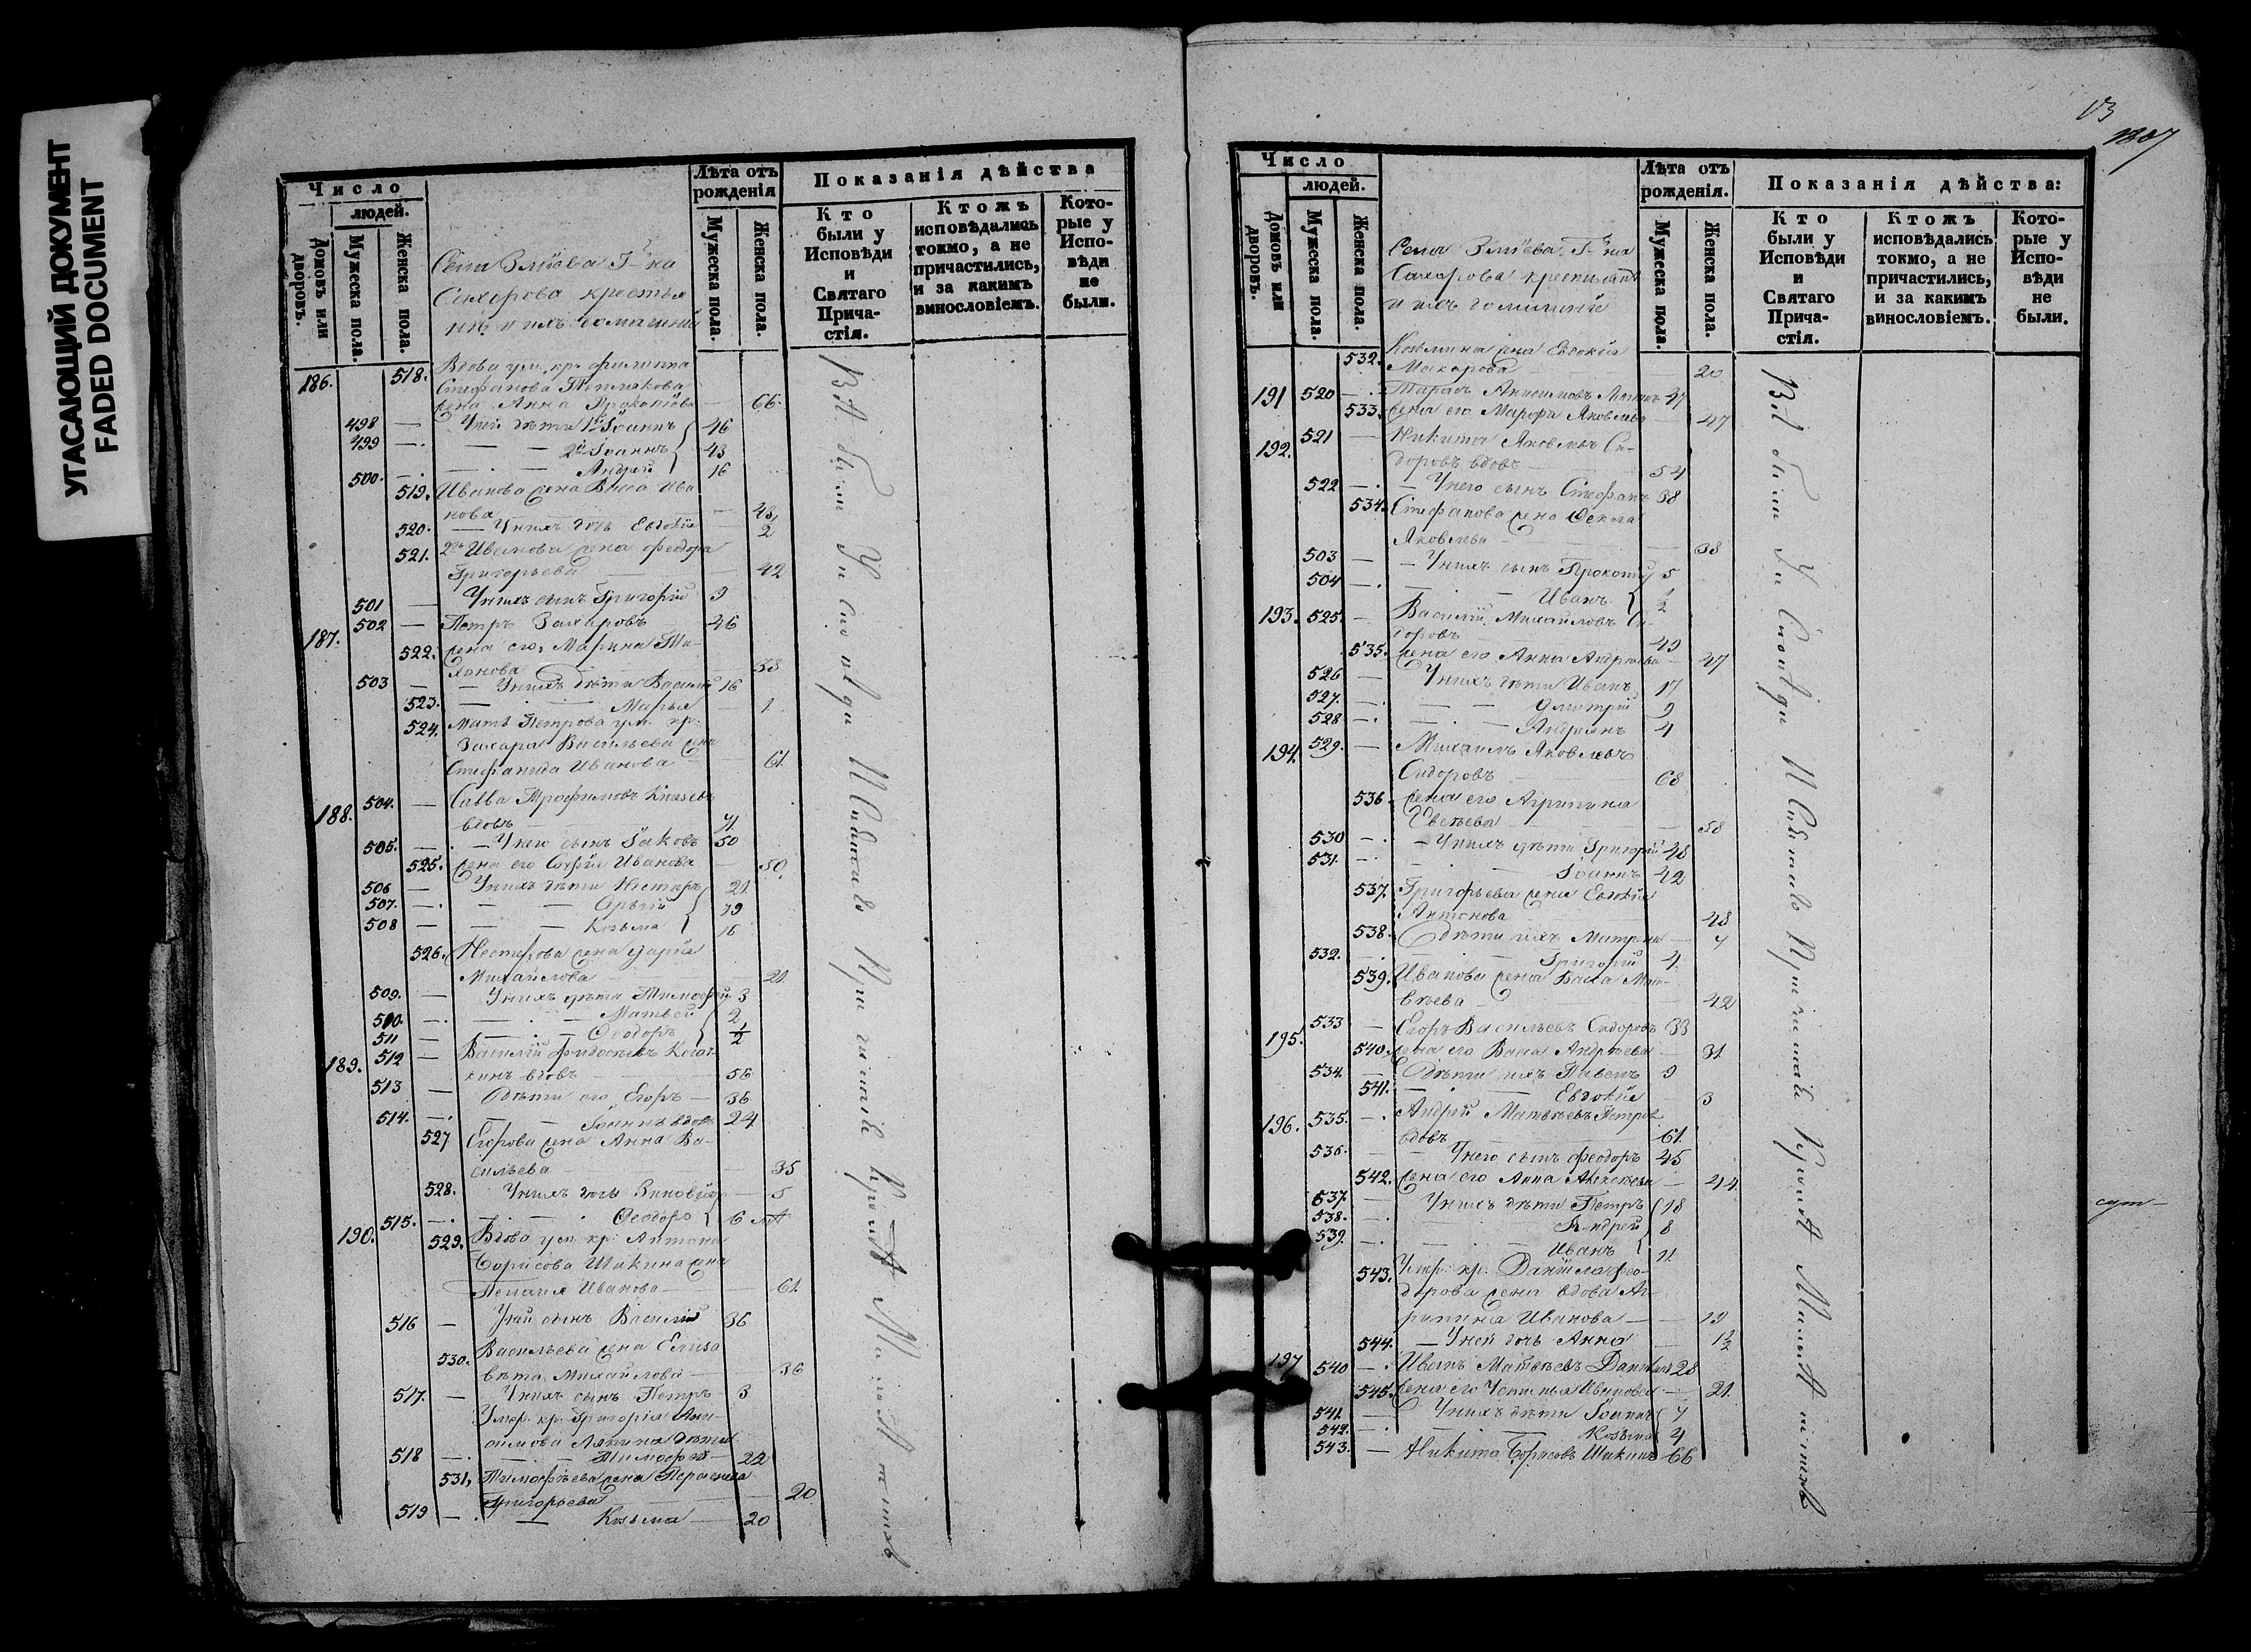 УТАСАЮЩИЙ ДОКУМЕНТ
FADED DOCUMENT
Число
людей.
Домовъ или дворовъ.
Мужеска пола.
Женска пола.
Лѣта отъ рожденія
Мужеска пола.
Женска пола.
Показанія дѣйства
Кто были у Исповѣди и Святаго Прича-стія.
Ктожъ исповѣдались токмо, а не причастились, и за какимъ винословіемъ.
Кото-рые у Испо-вѣди не были.
Села Г-на
Сахарова крестья
нѣ и ихъ домашніи
186. 518. Вдова ум. кр. Филиппа
Стефанова
жена Анна Прокопіева — 66.
498 — У ней дѣти 1й Іоаннъ 46
499 — 2й Іоаннъ 43
500. — Андрей 16
519. Иванова жена Васса Ива
нова — 43
520. — У нихъ дочь Евдокія — 2
521. 2го Иванова жена Феодора
Григорьева — 42
501 — У нихъ сынъ Григорій 9
187. 502 — Петръ Захаровъ 46
522. жена его Марина Ти-
хонова — 38
503 — У нихъ дѣти Василій 16
523. — Марья — 1
524. Мать Петрова ум. кр.
Захара Васильева жена
Стефанида Иванова — 61.
188. 504. — Савва Трофимовъ Князевъ
вдовъ 71.
505. — У него сынъ Іаковъ 50
525. жена его Софія Иванова — 50.
506 — У нихъ дѣти Несторъ 21
507. — Сергій 19
508 — Козьма 16
526. Нестерова жена Дарія
Михайлова — 21
509. — У нихъ дѣти Тимофей 3
510. — Матвей 2
511 — Феодоръ 1/2
189. 512 — Василій
кинъ вдовъ — 56
513 — Дѣти его Егоръ — 36
514. — Іоаннъ вдовъ 24
527 Егорова жена Анна Ва-
сильева — 35
528. У нихъ дочь — 5
515. — Феодоръ 6
190. 529. Вдова ум. кр. Антона
Борисова Шикина жена
Пелагія Иванова — 61.
516 — У ней сынъ Василій 36
530. Васильева жена Елиса
вета Михайлова — 36
517. — У нихъ сынъ Петръ 3
Умер. кр. Григорія Ани-
симова Ляпина дѣти
518 — Тимофей — 22
531. Тимофѣева жена
Григорьева — 20
519 — Козьма — 20
Всѣ были у исповѣди и святаго причастія кромѣ малолѣтнихъ
13
1807
Число
людей.
Домовъ или дворовъ.
Мужеска пола.
Женска пола.
Лѣта отъ рожденія.
Мужеска пола.
Женска пола.
Показанія дѣйства:
Кто были у Исповѣди и Святаго Прича-стія.
Ктожъ исповѣдались токмо, а не причастились, и за какимъ винословіемъ.
Кото-рые у Испо-вѣди не были.
Села Г-на
Сахарова крестьянѣ
и ихъ домашніе
532. Козьмина жена Евдокія
Макарова — 20
191 520 — Тарасъ Анисимовъ 47
533. Жена его Марфа Яковлева — 47
192. 521 — Никита Яковлевъ Си-
доровъ вдовъ 54
522 — У него сынъ Стефанъ 38
534. Стефанова жена Фекла
Яковлева — 38
503 — У нихъ сынъ Прокопій 5
504 — Иванъ 1/2
193. 525. — Василій Михайловъ Си-
доровъ 49
535. жена его Анна Андреева — 47
526 — У нихъ дѣти Иванъ 17
527. — Дмитрій 9
528 — Андреянъ 4
194. 529. — Михаилъ Яковлевъ
Сидоровъ 68
536. жена его Агрипина
— 58
530 — У нихъ дѣти Григорій 48
531. — Іоаннъ 42
537. Григорьева жена Евдокія
Антонова — 48
538. Дѣти ихъ Матрена — 7
532. — Григорій 4
539. Иванова жена Васса Мат-
вѣева — 42
195. 533 — Егоръ Васильевъ Сидоровъ 33
540. жена его Васса Андреева — 31
534. — Дѣти ихъ Павелъ 9
541. — Евдокія — 3
196. 535. — Андрей Матвѣевъ Петровъ
вдовъ — 61.
536. — У него сынъ Феодоръ 45
542. жена его Анна Алексѣева — 44
537. — У нихъ дѣти Петръ 18
538. — Андрей 8
539. — Иванъ 11
543. Умер. кр. Даніила Фео-
дорова жена вдова Аг-
рипина Иванова — 19
544. — У ней дочь Анна — 1 1/2
197 540 — Иванъ Матвѣевъ 28
545. Жена его Ивановна — 21.
541. — У нихъ дѣти Іоаннъ 7
542. — Козьма 4
543. — Никита Борисовъ Шикинъ 66
Всѣ были у исповѣди и святаго причастія кромѣ малолѣтнихъ